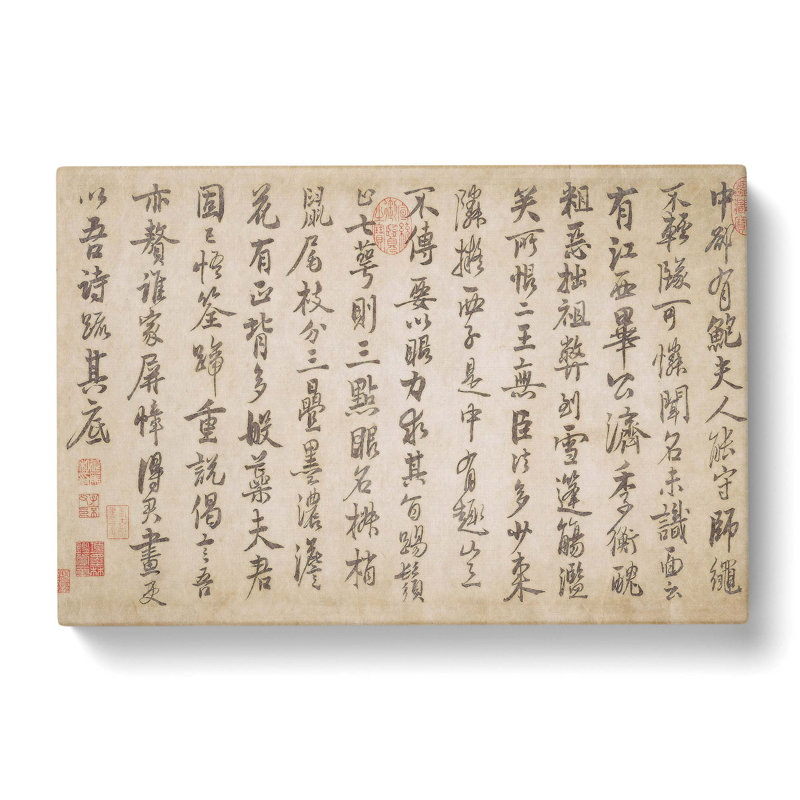 中卻有鮑夫人能守師繩
不輕隊可憐聞名未識面云
有江西畢公濟季衡醜
粗惡拙祖弊到雪蓬觴濫
矣所恨二王無臣法多少東
隣擬西子是中有趣豈
不傳要以眼力求其旨踢鬚
止七萼則三點眼名椒梢
鼠尾枝分三疊墨濃澹
花有正背多般蘂夫君
固已悟筌蹄重說偈言吾
亦贅誰家屏幛得君畫更
以吾詩疏其底